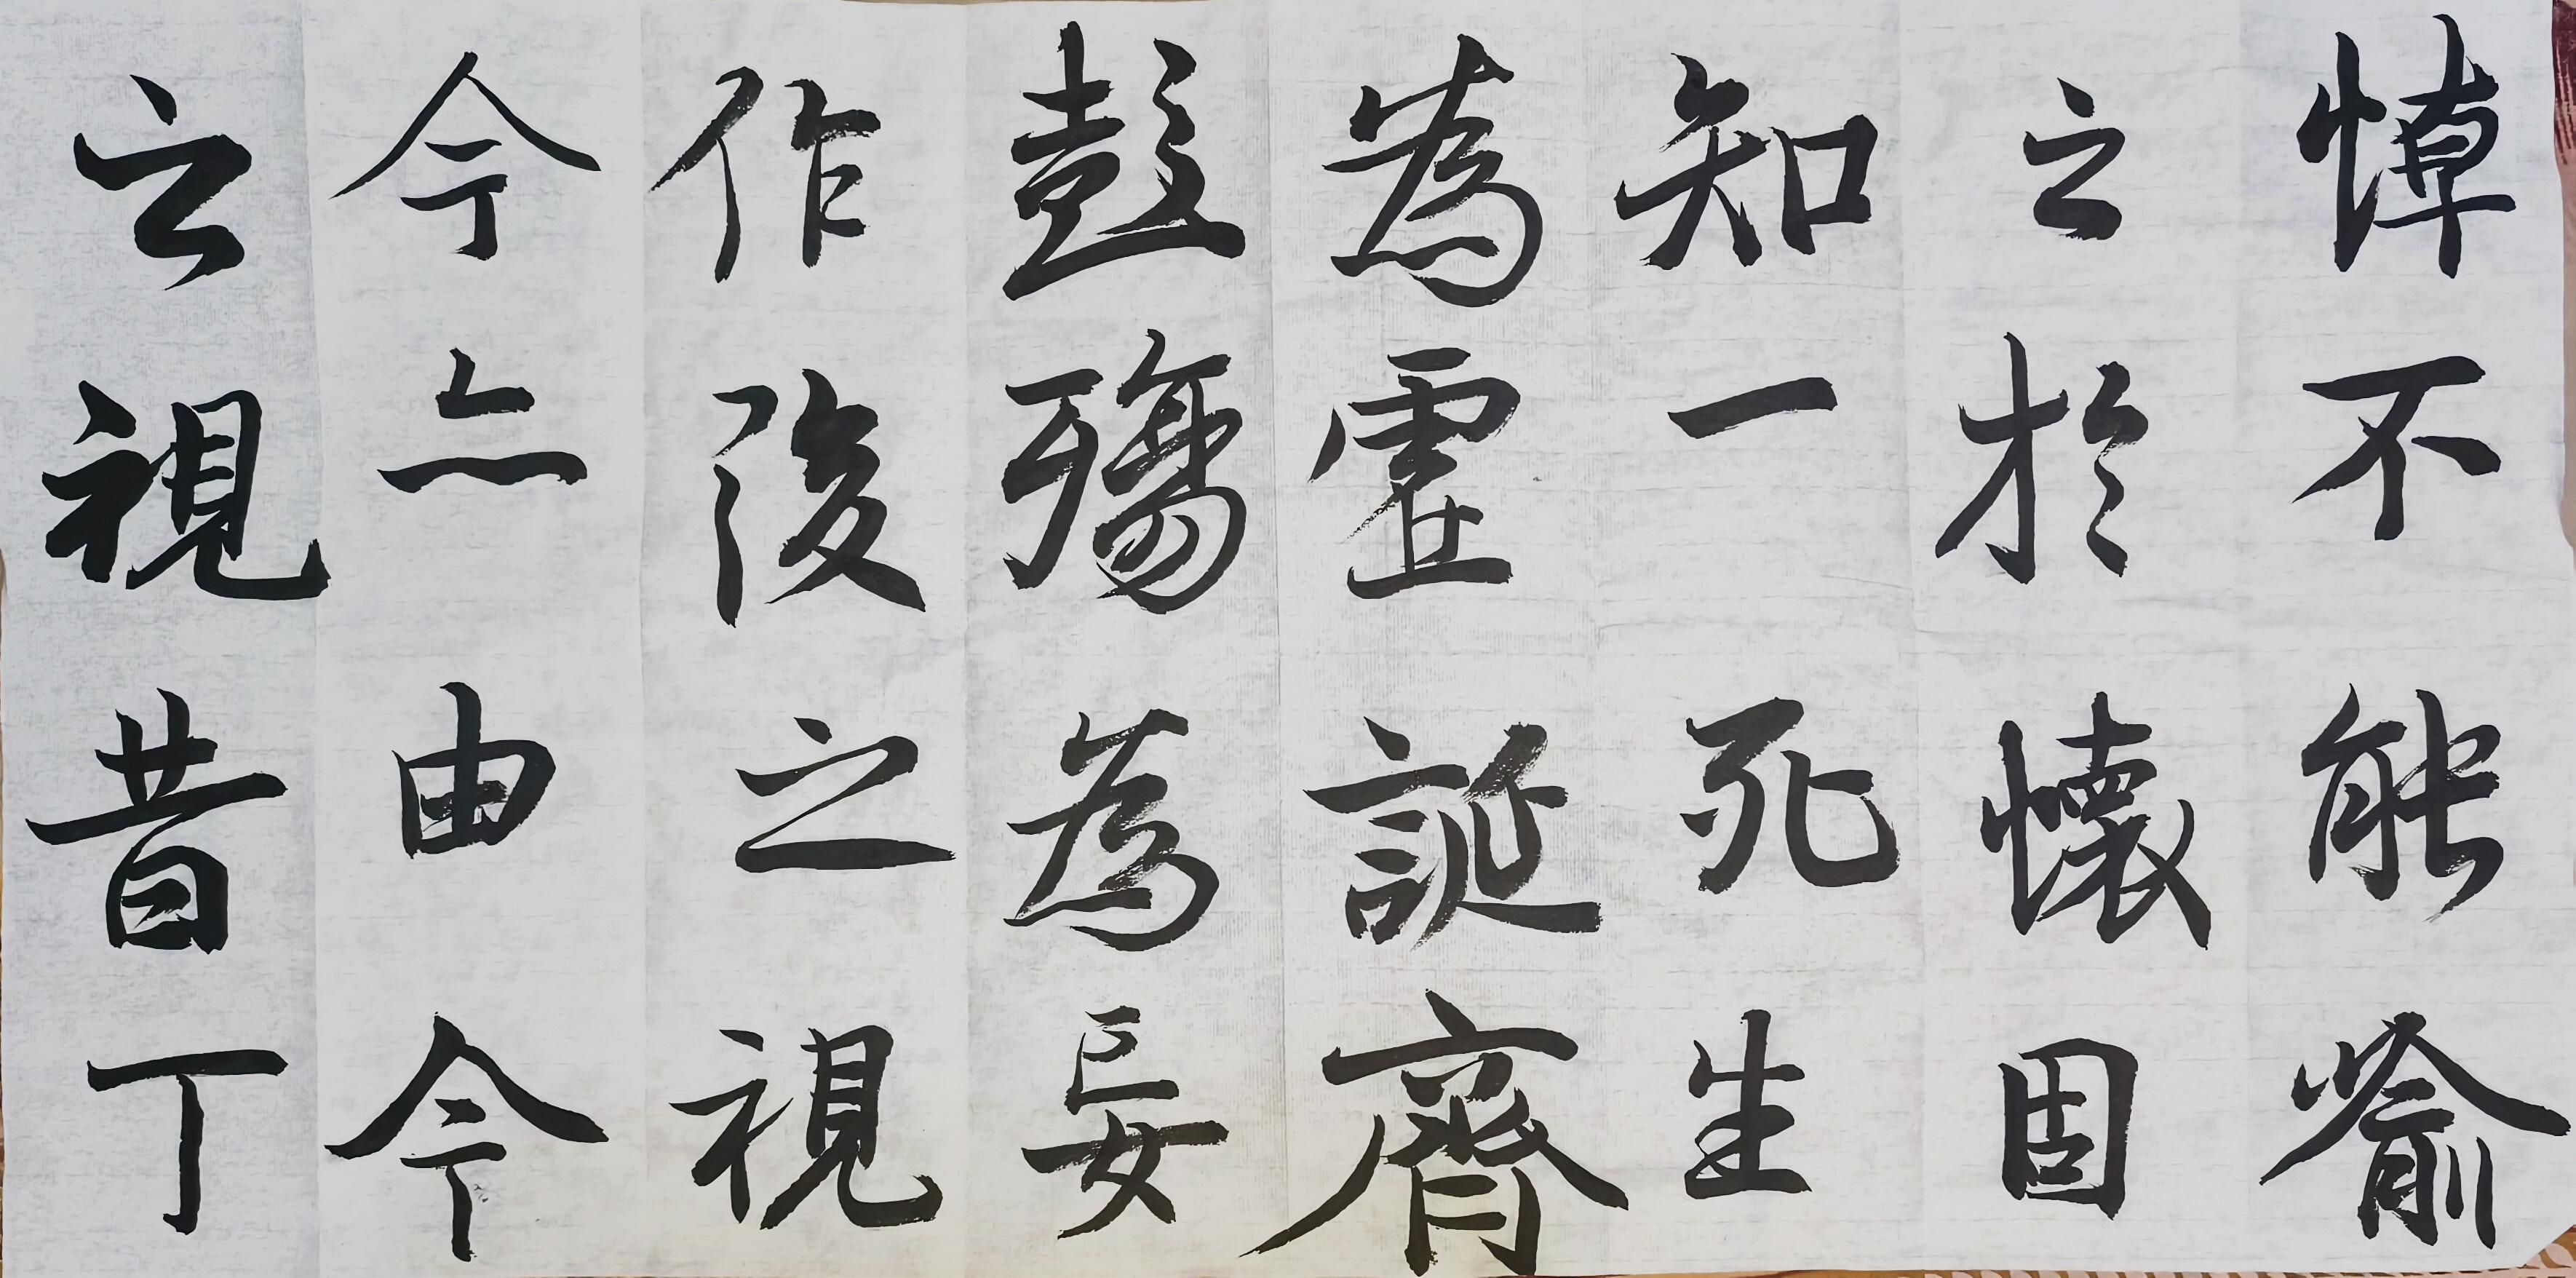 悼不能喻
之於懷固
知一死生
為虛誕齊
彭殤為妄
作後之視
今亦由今
之視昔丁